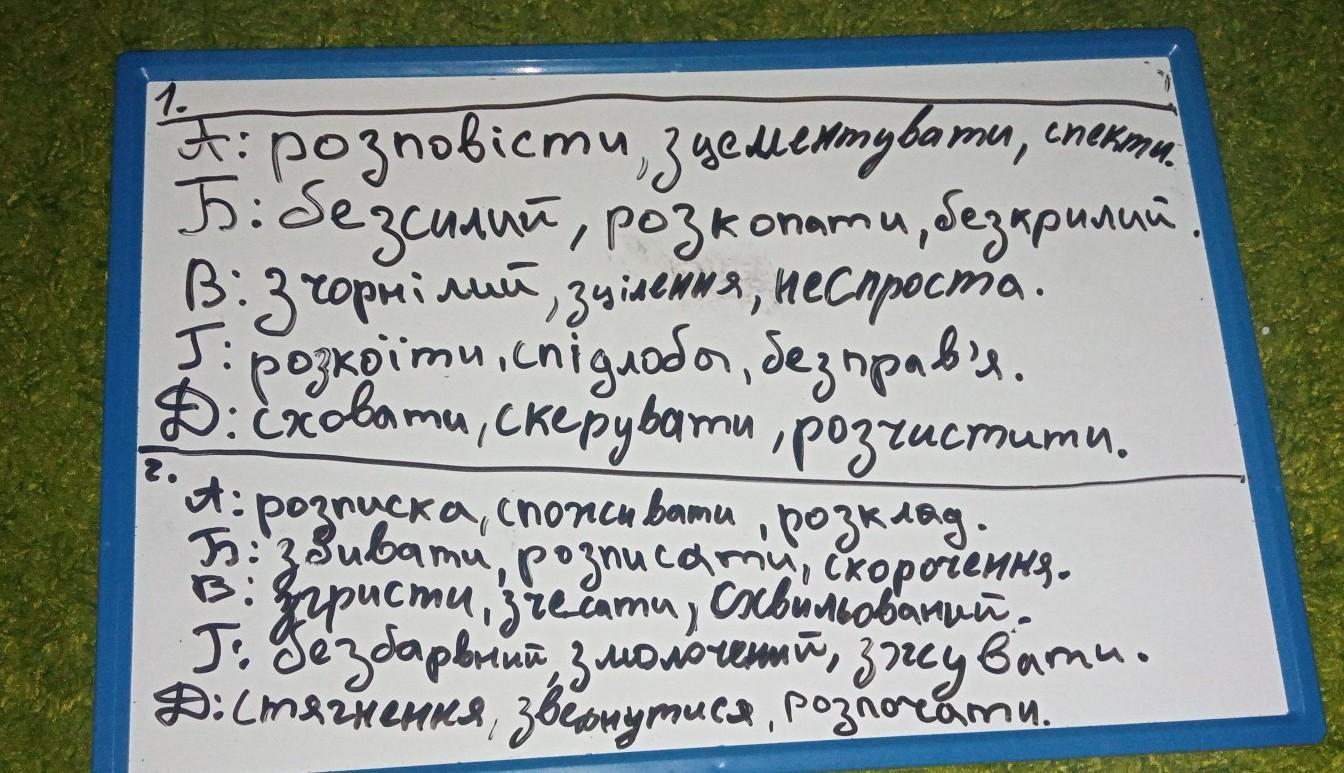 1.
А: розповісти, зцементувати, спекти.
Б: безсилий, розкопати, безкрилий.
В: зчорнілий, зцілення, неспроста.
Г: розкоїти, спідлоба, безправ'я.
Д: сховати, скерувати, розчистити.
2.
А: розписка, споживати, розклад.
Б: звивати, розписати, скорочення.
В: згристи, зчесати, схвильований.
Г: безбарвний, змолочений, зжувати.
Д: стягнення, звернутися, розпочати.